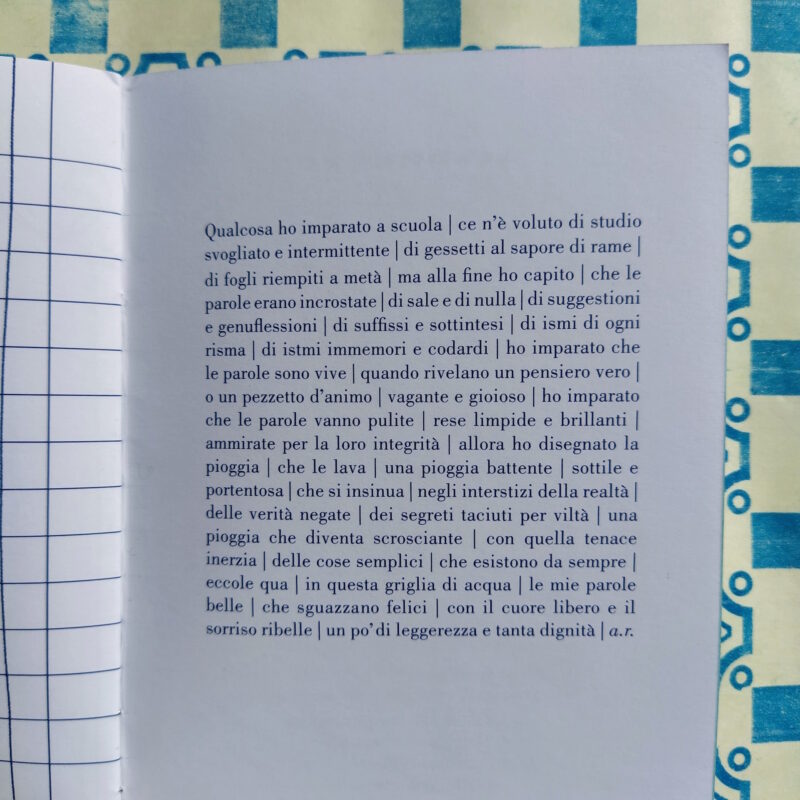 Qualcosa ho imparato a scuola | ce n'è voluto di studio
svogliato e intermittente | di gessetti al sapore di rame |
di fogli riempiti a metà | ma alla fine ho capito | che le
parole erano incrostate | di sale e di nulla | di suggestioni
e genuflessioni | di suffissi e sottintesi | di ismi di ogni
risma | di istmi immemori e codardi | ho imparato che
le parole sono vive | quando rivelano un pensiero vero |
o un pezzetto d'animo | vagante e gioioso | ho imparato
che le parole vanno pulite | rese limpide e brillanti |
ammirate per la loro integrità | allora ho disegnato la
pioggia | che le lava | una pioggia battente | sottile e
portentosa | che si insinua | negli interstizi della realtà |
delle verità negate | dei segreti taciuti per viltà | una
pioggia che diventa scrosciante | con quella tenace
inerzia | delle cose semplici | che esistono da sempre |
eccole qua | in questa griglia di acqua | le mie parole
belle | che sguazzano felici | con il cuore libero e il
sorriso ribelle | un po' di leggerezza e tanta dignità | a.r.